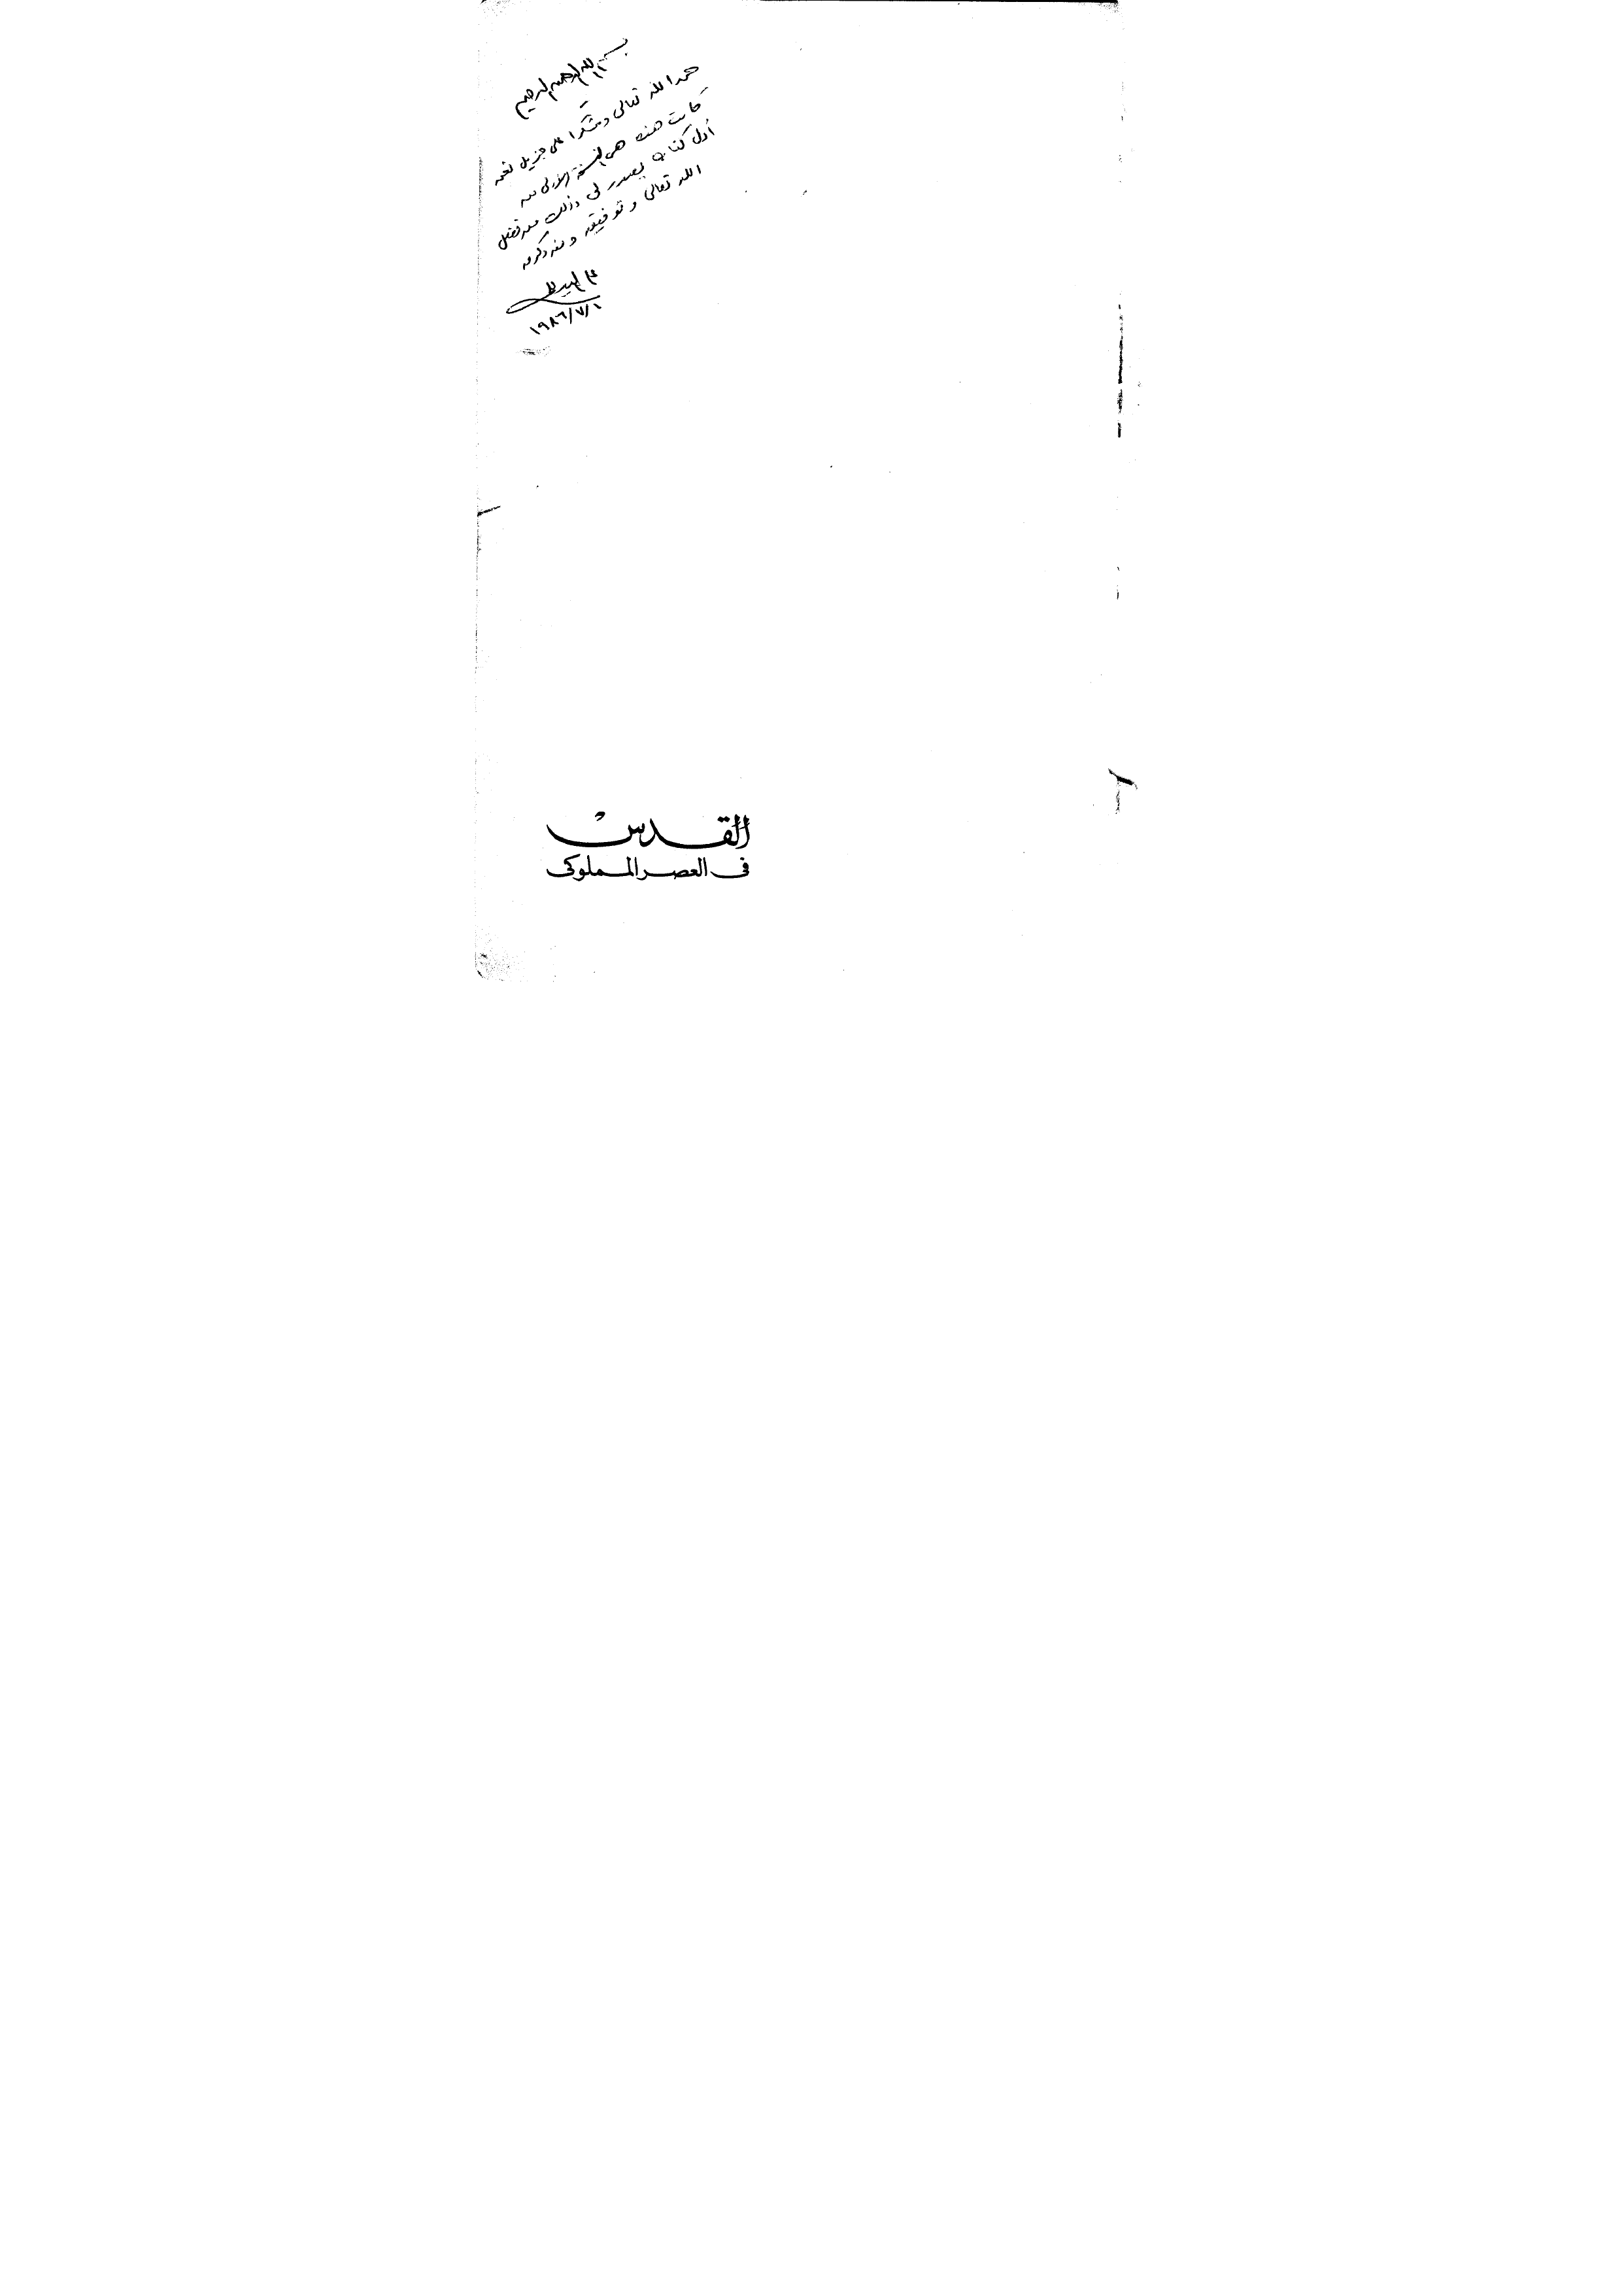 بسم الله الرحمن الرحيم
حمدا لله تعالى وشكرا على جزيل نعمه
كانت هذه هي النسخة الأولى من
أول كتاب يصدر لي وذلك من فضل
الله تعالى وتوفيقه ومنه وكرمه
١٩٨٦/٧/١
القدس
فى العصر المملوكى